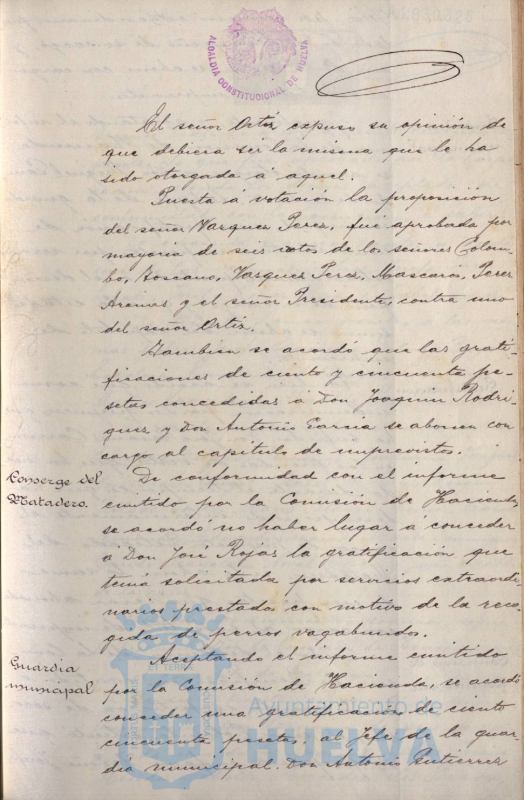 ALCALDIA CONSTITUCIONAL DE HUELVA
El señor Ortiz expuso su opinión de
que debiera ser la misma que le ha
sido otorgada á aquel.
Puesta á votación la proposición
del señor Vazquez Perez, fué aprobada por
mayoria de seis votos de los señores Colom-
bo, Toscano, Vazquez Perez, Mascaros, Perez
Arenas y el señor Presidente, contra uno
del señor Ortiz.
Tambien se acordó que las grati-
ficaciones de ciento y cincuenta pe-
setas concedidas á Don Joaquin Rodri-
guez y Don Antonio Garcia se abonen con
cargo al capitulo de imprevistos.
Conserge del
Matadero.
De conformidad con el informe
emitido por la Comisión de Hacienda,
se acordó no haber lugar á conceder
á Don José Rojas la gratificación que
tenia solicitada por servicios extraordi-
narios prestados con motivo de la reco-
gida de perros vagabundos.
Guardia
municipal
Aceptando el informe emitido
por la Comisión de Hacienda, se acordó
conceder una gratificación de ciento
cincuenta pesetas, al Jefe de la guar-
dia municipal. Don Antonio Gutierrez
Ayuntamiento de
HUELVA